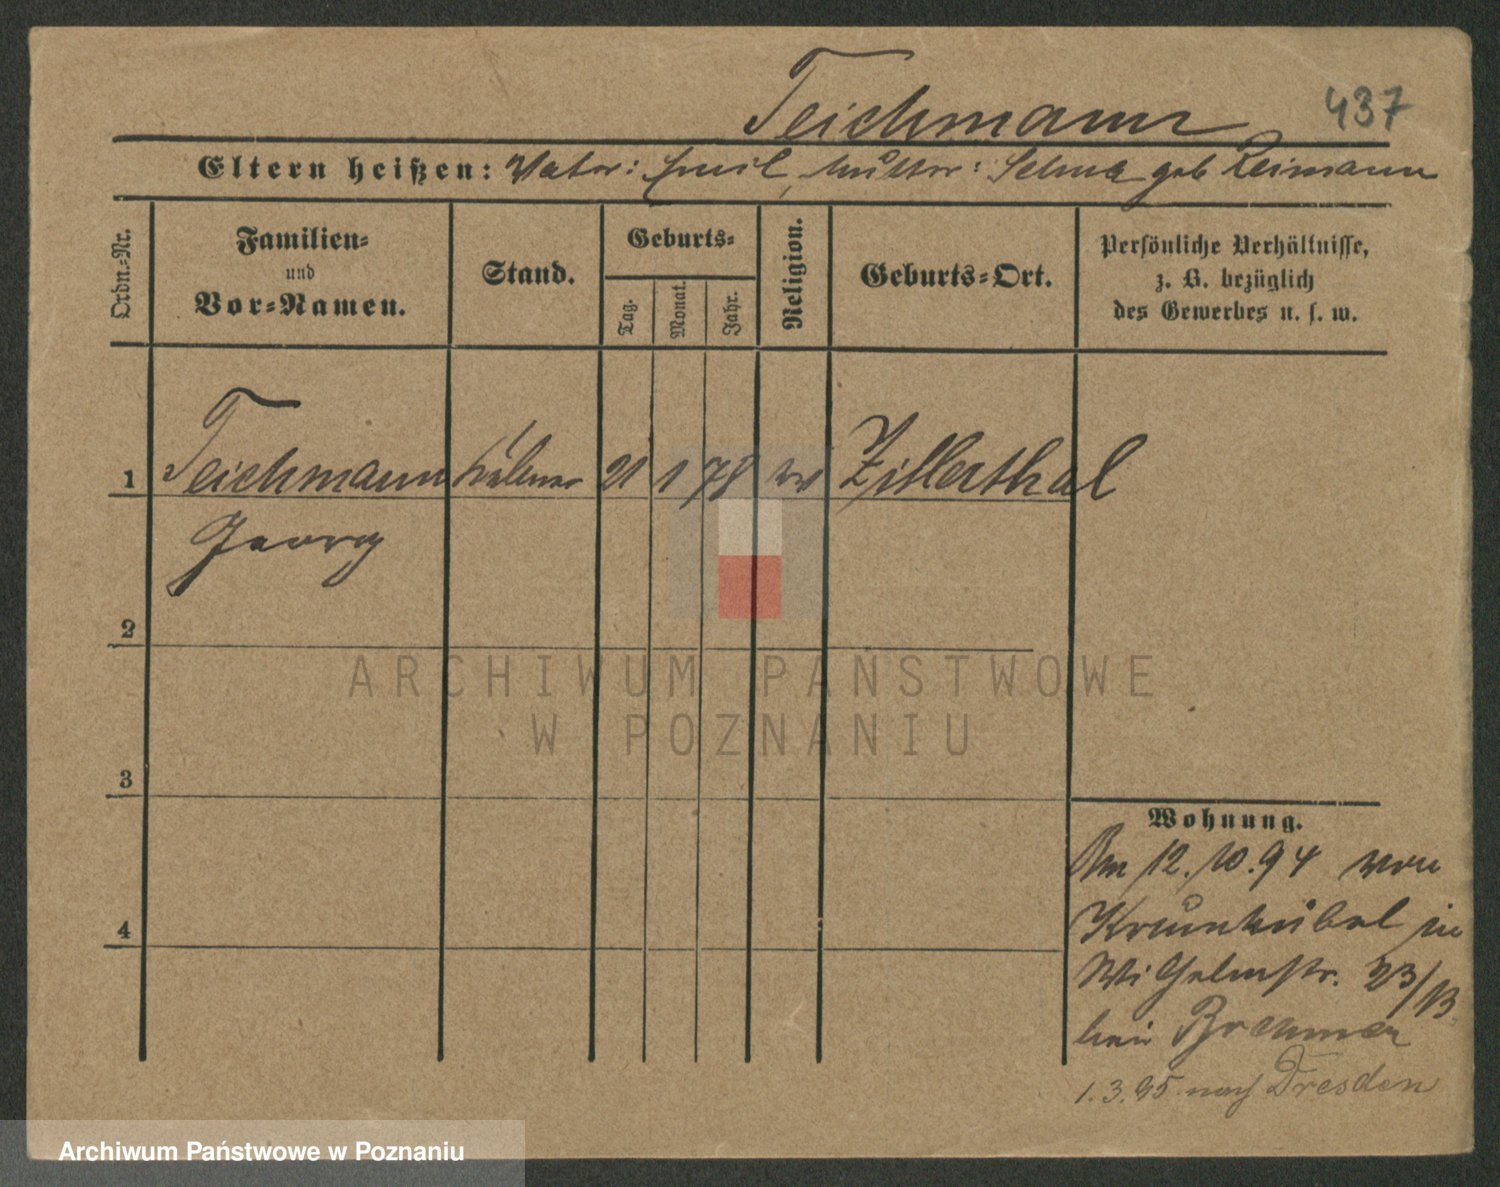 Teichmann 437
Eltern heißen: Vater: Emil, Mutter: Selma geb Reimann
Ordn.-Nr.
Familien-
und
Vor-Namen.
Stand.
Geburts-
Tag.
Monat.
Jahr.
Religion.
Geburts-Ort.
Persönliche Verhältnisse,
z. B. bezüglich
des Gewerbes u. s. w.
1 Teichmann 21 1 78 Zillerthal
Georg
2
3
4
Wohnung.
Am 12.10.94 von
Krumhübel in
Wilhelmstr. 23/
bei
1.3.95 nach Dresden
ARCHIWUM PAŃSTWOWE
W POZNANIU
Archiwum Państwowe w Poznaniu